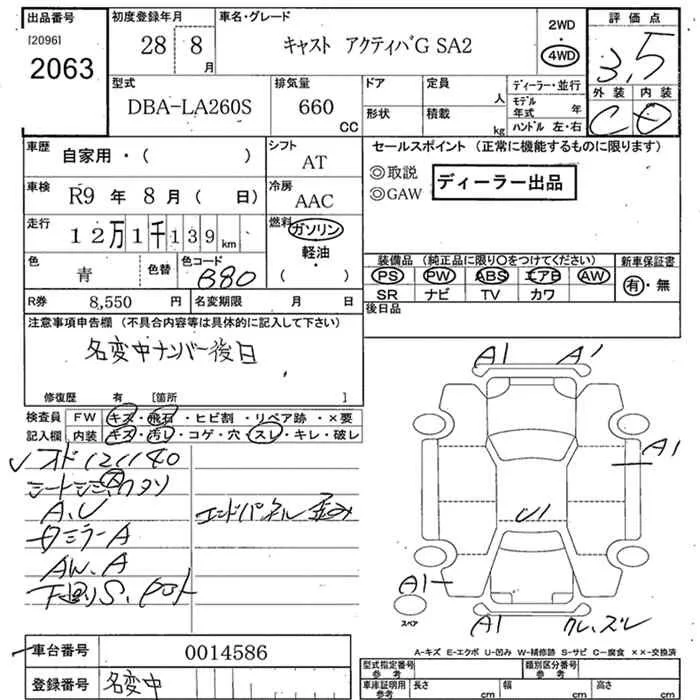 出品番号 初度登録年月 車名・グレード 2WD ・ 4WD 評価点
[2096] 2063 28 8月 キャスト アクティバG SA2 3.5
型式 排気量 ドア 定員 人 ディーラー・並行 外装 内装
DBA-LA260S 660 CC 形状 積載 kg モデル年式 年 C D
ハンドル 左・右
車歴 自家用・( ) シフト AT セールスポイント (正常に機能するものに限ります)
車検 R9年 8月( 日) 冷房 AAC ◎取説 ディーラー出品
◎GAW
走行 12万1千139km 燃料 ガソリン
軽油・
( )
色 青 色替 色コード B80 装備品 (純正品に限り〇をつけてください) 新車保証書
PS PW ABS エアB AW 有・無
SR ナビ TV カワ
R券 8,550 円 名変期限 月 日 後日品
注意事項申告欄 (不具合内容等は具体的に記入して下さい)
名変中ナンバー後日
修復歴 有 [箇所 ]
検査員 FW キズ・飛石・ヒビ割・リペア跡・×要
記入欄 内装 キズ・汚レ・コゲ・穴・スレ・キレ・破レ
A1 A1
オド121140
A1
A,U エンドパネル歪み
ミラーA U1
AW,A
A1
下回りS,
スペア
A1 スレ
A-キズ E-エクボ U-凹み W-補修跡 S-サビ C-腐食 ××-交換済
車台番号 0014586
登録番号 名変中
型式指定番号 参考 類別区分番号 参考
車庫証明用 参考 長さ cm 幅 cm 高さ cm